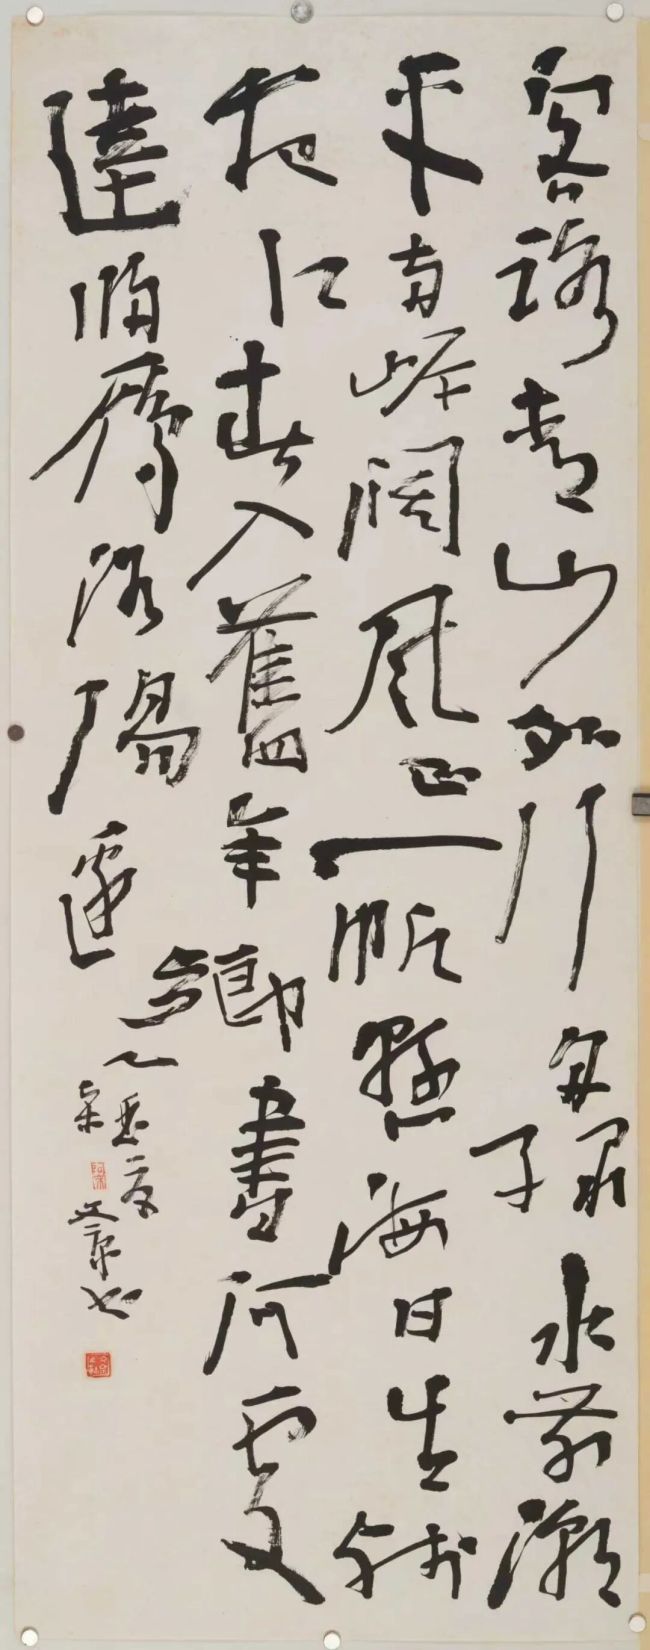 客路青山外行舟綠水前潮
平兩岸闊風正一帆懸海日生殘
夜江春入舊年鄉書何處
達歸雁洛陽邊